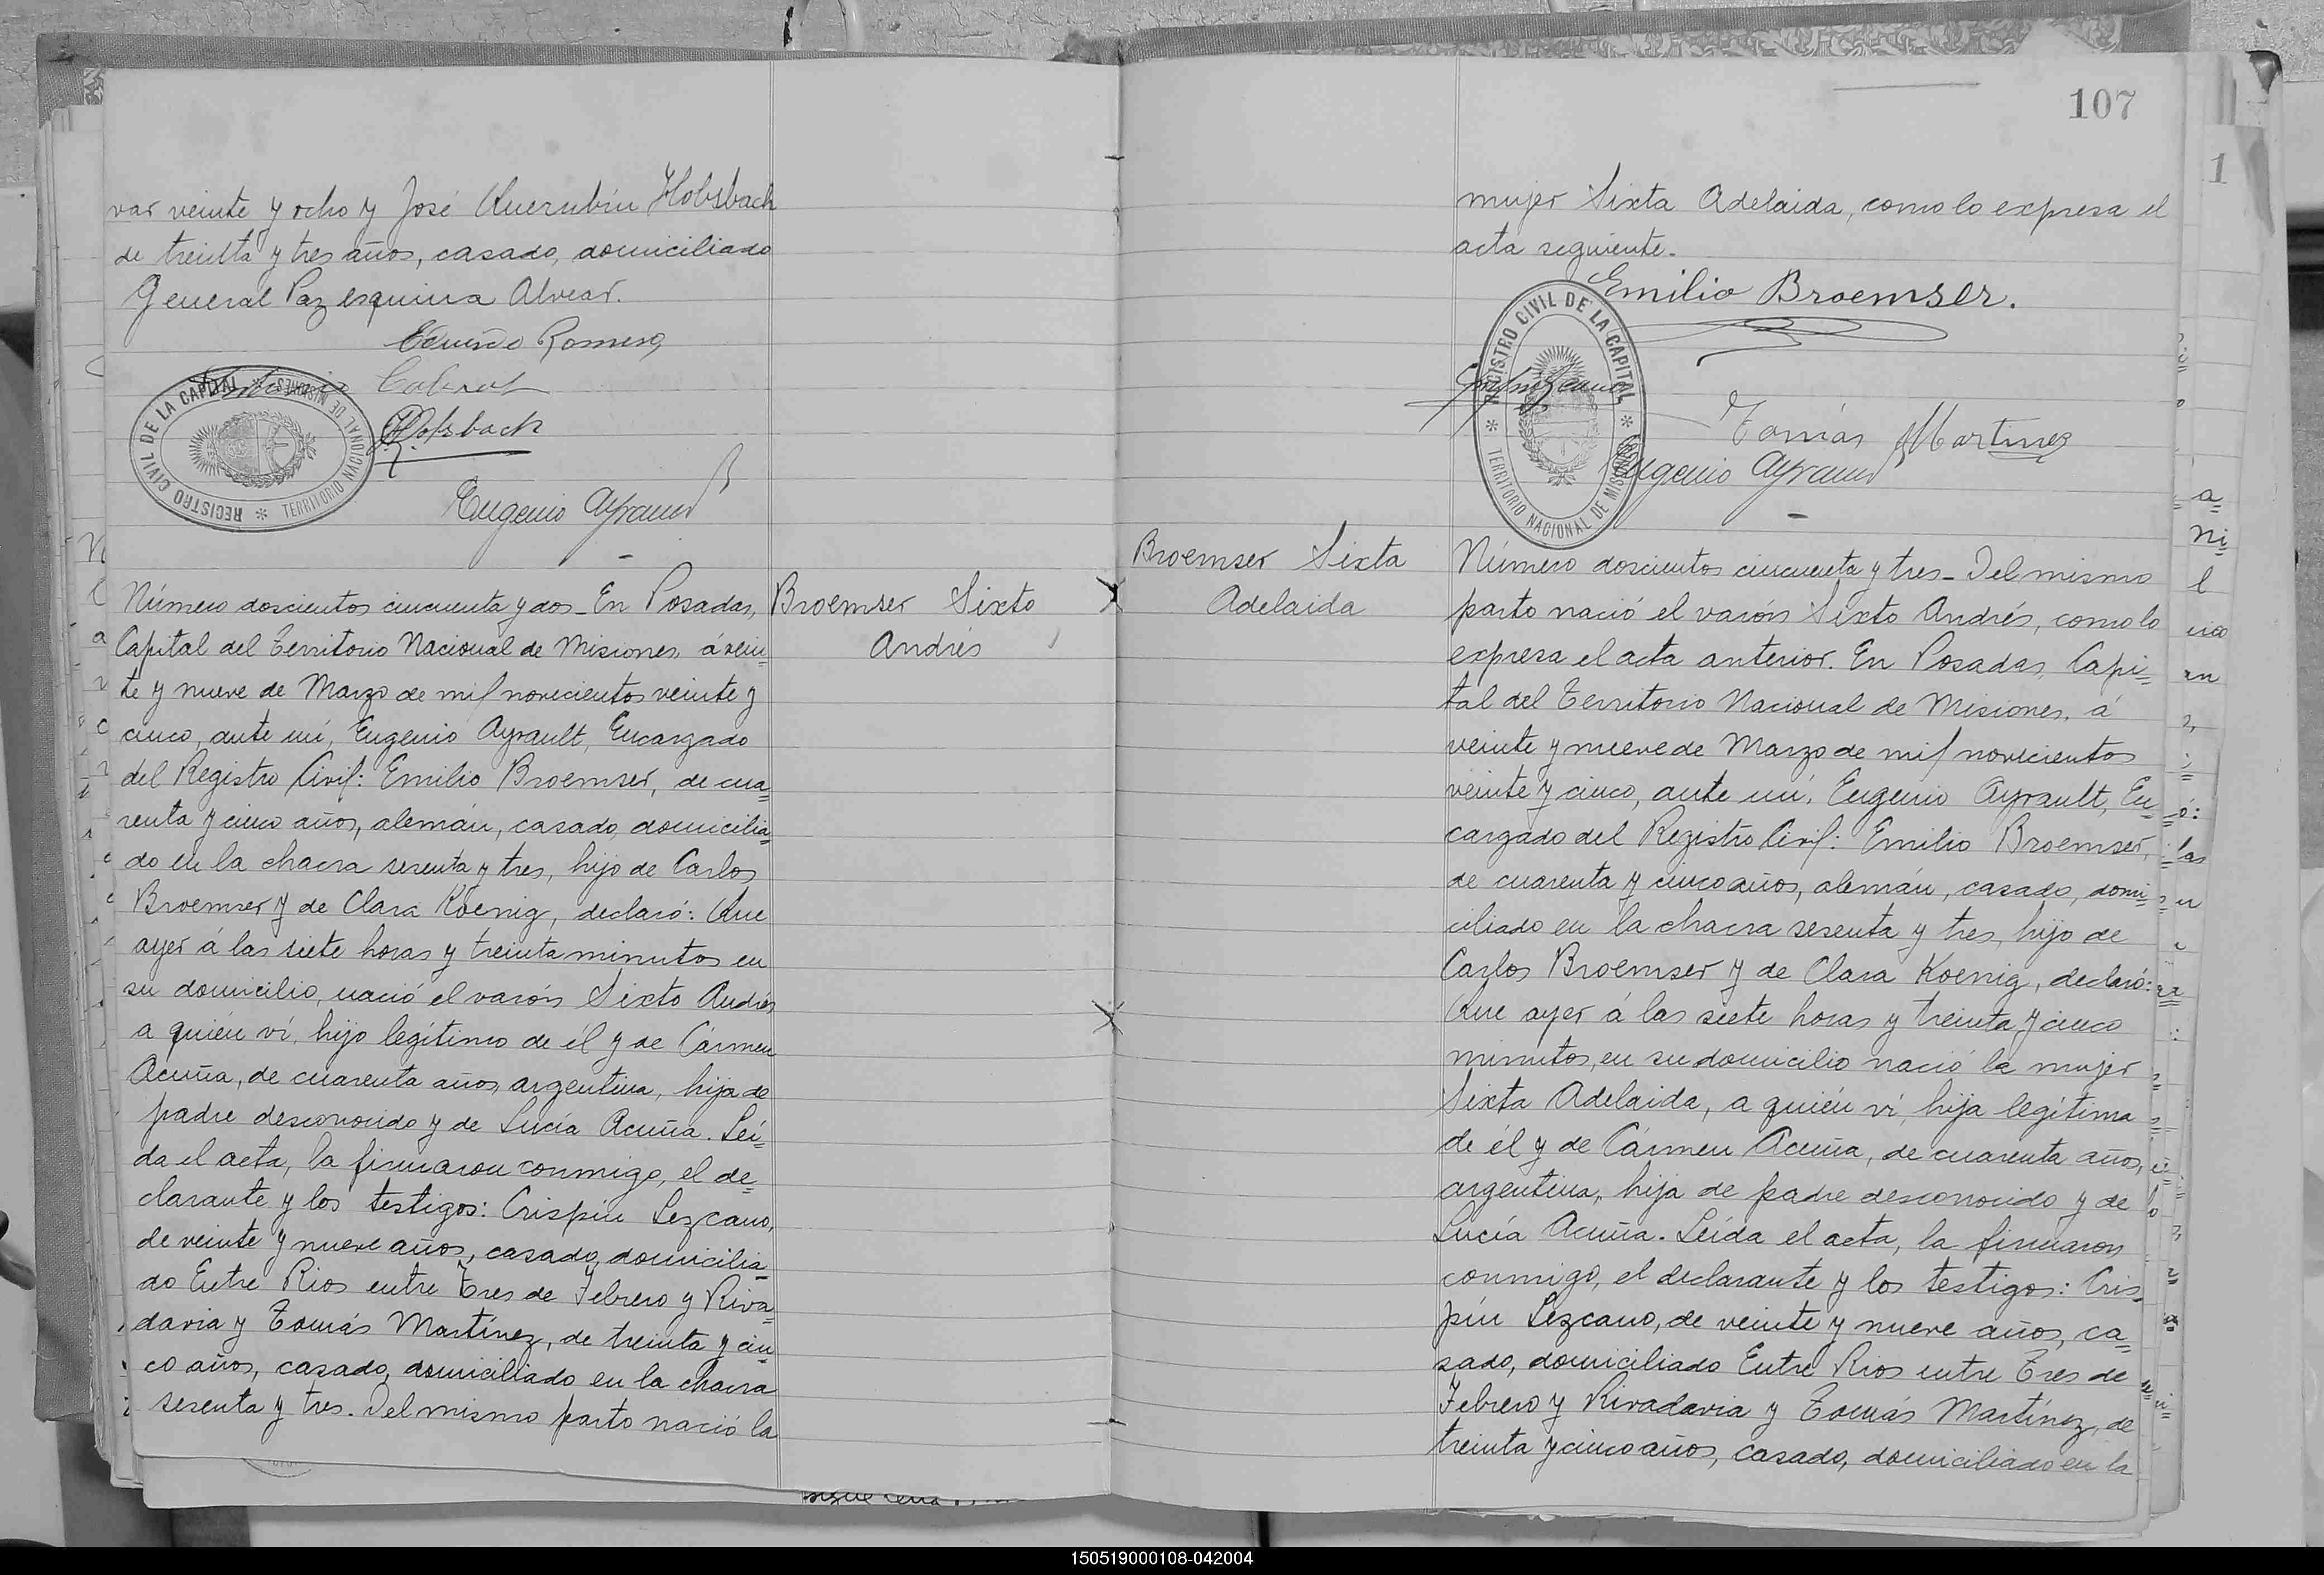 var veinte y ocho y José Querubín Holsbach
de treinta y tres años, casado, domiciliado
General Paz esquina Alvear.
Romero
Cabral
Holsbach
Eugenio Ayrault
REGISTRO CIVIL DE LA CAPITAL * TERRITORIO NACIONAL DE MISIONES *
Número doscientos cincuenta y dos_ En Posadas,
Capital del Territorio Nacional de Misiones, á vein=
te y nueve de Marzo de mil novecientos veinte y
cinco, ante mí, Eugenio Ayrault, Encargado
del Registro Civil: Emilio Broemser, de cua=
renta y cinco años, alemán, casado, domicilia=
do en la chacra sesenta y tres, hijo de Carlos
Broemser y de Clara Koenig, declaró: Que
ayer á las siete horas y treinta minutos en
su domicilio, nació el varón Sixto Andrés
a quién ví, hijo legítimo de él y de Cármen
Acuña, de cuarenta años, argentina, hija de
padre desconocido y de Lucía Acuña. Leí=
da el acta, la firmaron conmigo, el de=
clarante y los testigos: Crispín Lezcano,
de veinte y nueve años, casado, domicilia=
do Entre Rios entre Tres de Febrero y Riva=
davia y Tomás Martínez, de treinta y cin=
co años, casado, domiciliado en la chacra
sesenta y tres. Del mismo parto nació la
Broemser Sixto
Andrés
107
mujer Sixta Adelaida, como lo expresa el
acta seguiente.
Emilio Broemser.
Tomás Martinez
Eugenio Ayrault
REGISTRO CIVIL DE LA CAPITAL * TERRITORIO NACIONAL DE MISIONES *
Broemser Sixta
Adelaida
Número doscientos cincuenta y tres_ Del mismo
parto nació el varón Sixto Andrés, como lo
expresa el acta anterior. En Posadas, Capi=
tal del Territorio Nacional de Misiones, á
veinte y nueve de Marzo de mil novecientos
veinte y cinco, ante mí, Eugenio Ayrault, En=
cargado del Registro Civil: Emilio Broemser,
de cuarenta y cinco años, alemán, casado, domi=
ciliado en la chacra sesenta y tres, hijo de
Carlos Broemser y de Clara Koenig, declaró:
Que ayer á las siete horas y treinta y cinco
minutos, en su domicilio nació la mujer
Sixta Adelaida, a quién ví, hija legítima
de él y de Cármen Acuña, de cuarenta años,
argentina, hija de padre desconocido y de
Lucía Acuña. Leída el acta, la firmaron
conmigo, el declarante y los testigos: Cris=
pín Lezcano, de veinte y nueve años, ca=
sado, domiciliado Entre Rios entre Tres de
Febrero y Rivadavia y Tomás Martínez, de
treinta y cinco años, casado, domiciliado en la
150519000108-042004